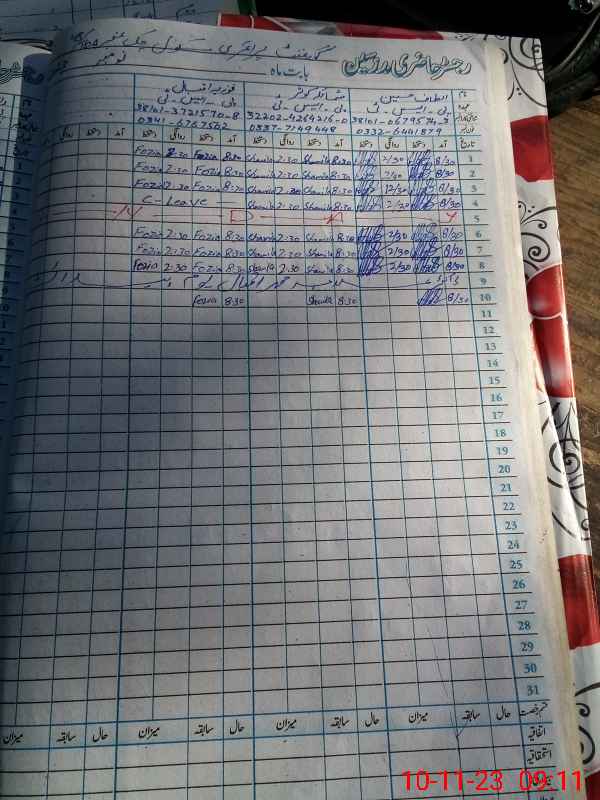 رجسٹر حاضری مدرسین گورنمنٹ پرائمری سکول چک نمبر
بابت ماہ نومبر
نام الطاف حسین شمائلہ کوثر فوزیہ افضال
عہدہ پی۔ایس۔ٹی پی۔ایس۔ٹی پی۔ایس۔ٹی
38101-0679574-3 32202-4264216-0 38101-3721570-8
0332-6441879 0337-7149448 0341-6767502
تاریخ آمد دستخط روانگی دستخط آمد دستخط روانگی دستخط آمد دستخط روانگی دستخط آمد دستخط روانگی
1 8/30 2/30 8:30 Shamila 2:30 Shamila 8:30 Fozia 2:30 Fozia
2 8/30 2/30 8:30 Shamila 2:30 Shamila 8:30 Fozia 2:30 Fozia
3 8/30 12/30 8:30 Shamila 2:30 Shamila 8:30 Fozia 2:30 Fozia
4 8/30 2/30 8:30 Shamila 2:30 Shamila C-Leave
5
6 8/30 2/30 8:30 Shamila 2:30 Shamila 8:30 Fozia 2:30 Fozia
7 8/30 2/30 8:30 Shamila 2:30 Shamila 8:30 Fozia 2:30 Fozia
8 8/30 2/30 8:30 Shamila 2:30 Shamila 8:30 Fozia 2:30 Fozia
9 محمد اقبال
10 8/30 8:30 Shamila 8:30 Fozia
11
12
13
14
15
16
17
18
19
20
21
22
23
24
25
26
27
28
29
30
31
قسم رخصت حال سابقہ میزان حال سابقہ میزان حال سابقہ میزان حال سابقہ میزان
اتفاقیہ
استحقاقیہ
10-11-23 09:11